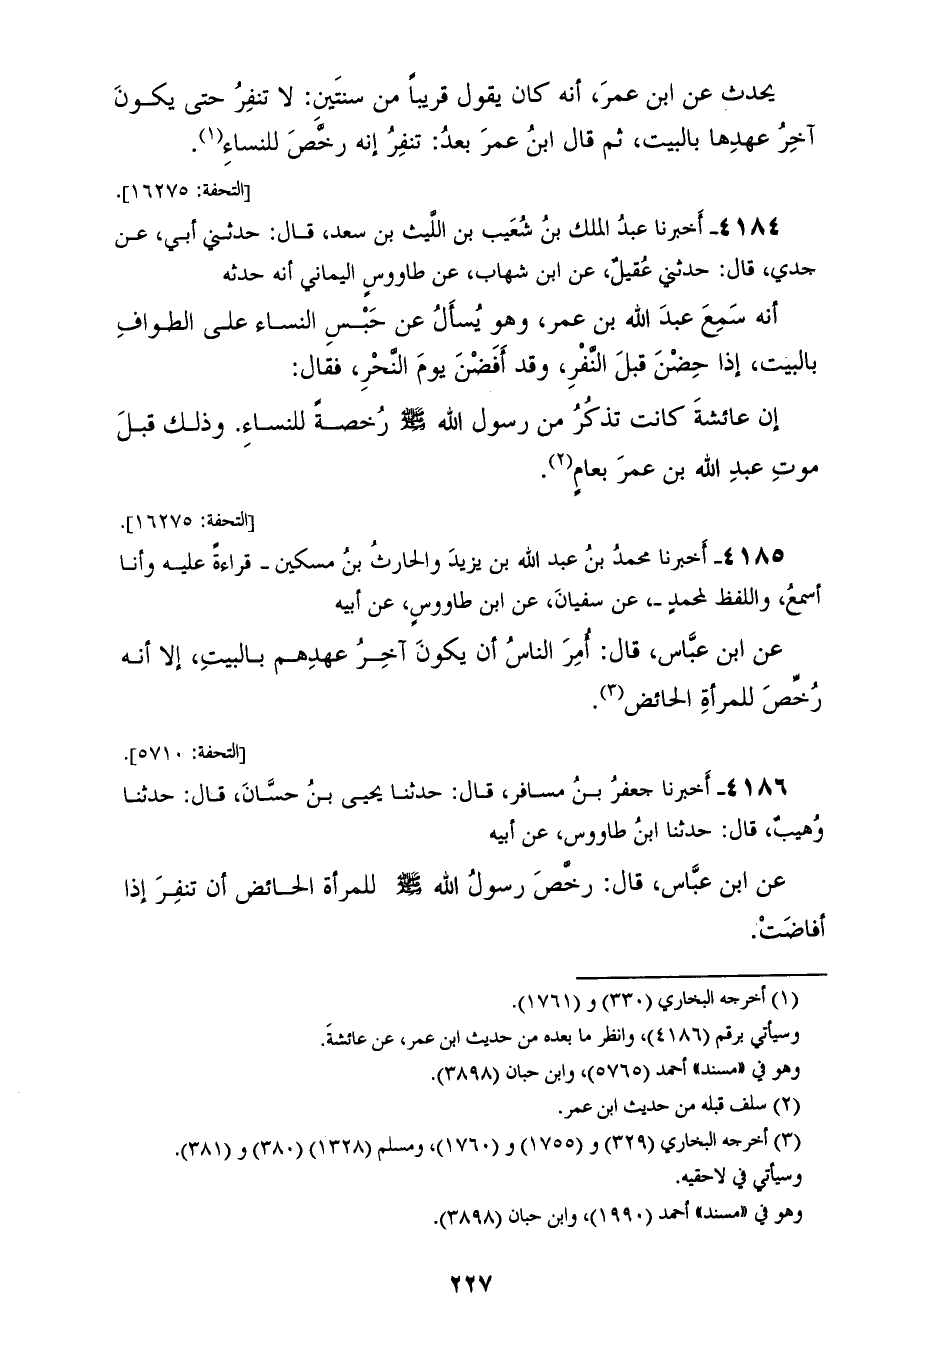 يحدث عن ابن عمرَ، أنه كان يقول قريباً من سنتَينِ: لا تنفِرُ حتى يكـونَ
آخِرُ عهدِها بالبيت، ثم قال ابنُ عمرَ بعدُ: تنفِرُ إنه رخَّصَ للنساءِ(١).
[التحفة: ١٦٢٧٥].
٤١٨٤ـ أَخبرنا عبدُ الملك بنُ شُعَيب بن اللَّيث بن سعد، قـال: حدثـني أبي، عـن
جدي، قال: حدثني عُقيلٌ، عن ابن شهاب، عن طاووسٍ اليماني أنه حدثه
أنه سَمِعَ عبدَ الله بن عمر، وهو يُسأَلُ عن حَبْسِ النسـاء علـى الطـوافِ
بالبيت، إذا حِضْنَ قبلَ النَّفْرِ، وقد أَفَضْنَ يومَ النَّحْرِ، فقال:
إن عائشةَ كانت تذكُرُ من رسول الله ﷺ رُخصـةً للنسـاءِ. وذلـك قبـلَ
موتِ عبدِ الله بن عمرَ بعامٍ(٢).
[التحفة: ١٦٢٧٥].
٤١٨٥ـ أَخبرنا محمدُ بنُ عبد الله بن يزيدَ والحارثُ بنُ مسكين ـ قراءةً عليـه وأنـا
أسمعُ، واللفظ لمحمدٍ ـ، عن سفيانَ، عن ابن طاووسٍ، عن أبيه
عن ابن عبَّاس، قال: أُمِرَ الناسُ أن يكونَ آخِـرُ عهدِهـم بـالبيتِ، إلا أنـه
رُخِّصَ للمرأةِ الحائض(٣).
[التحفة: ٥٧١٠].
٤١٨٦ـ أَخبرنا جعفرُ بـنُ مسـافر، قـال: حدثنـا يحيـى بـنُ حسَّـانَ، قـال: حدثنـا
وُهيبٌ، قال: حدثنا ابنُ طاووس، عن أبيه
عن ابن عبَّاس، قال: رخَّصَ رسولُ الله ﷺ للمرأة الحـائض أن تنفِـرَ إذا
أفاضَتْ.
(١) أخرجه البخاري (٣٣٠) و (١٧٦١).
وسيأتي برقم (٤١٨٦)، وانظر ما بعده من حديث ابن عمر، عن عائشةَ.
وهو في «مسند» أحمد (٥٧٦٥)، وابن حبان (٣٨٩٨).
(٢) سلف قبله من حديث ابن عمر.
(٣) أخرجه البخاري (٣٢٩) و (١٧٥٥) و (١٧٦٠)، ومسلم (١٣٢٨) (٣٨٠) و (٣٨١).
وسيأتي في لاحقيه.
وهو في «مسند» أحمد (١٩٩٠)، وابن حبان (٣٨٩٨).
٢٢٧